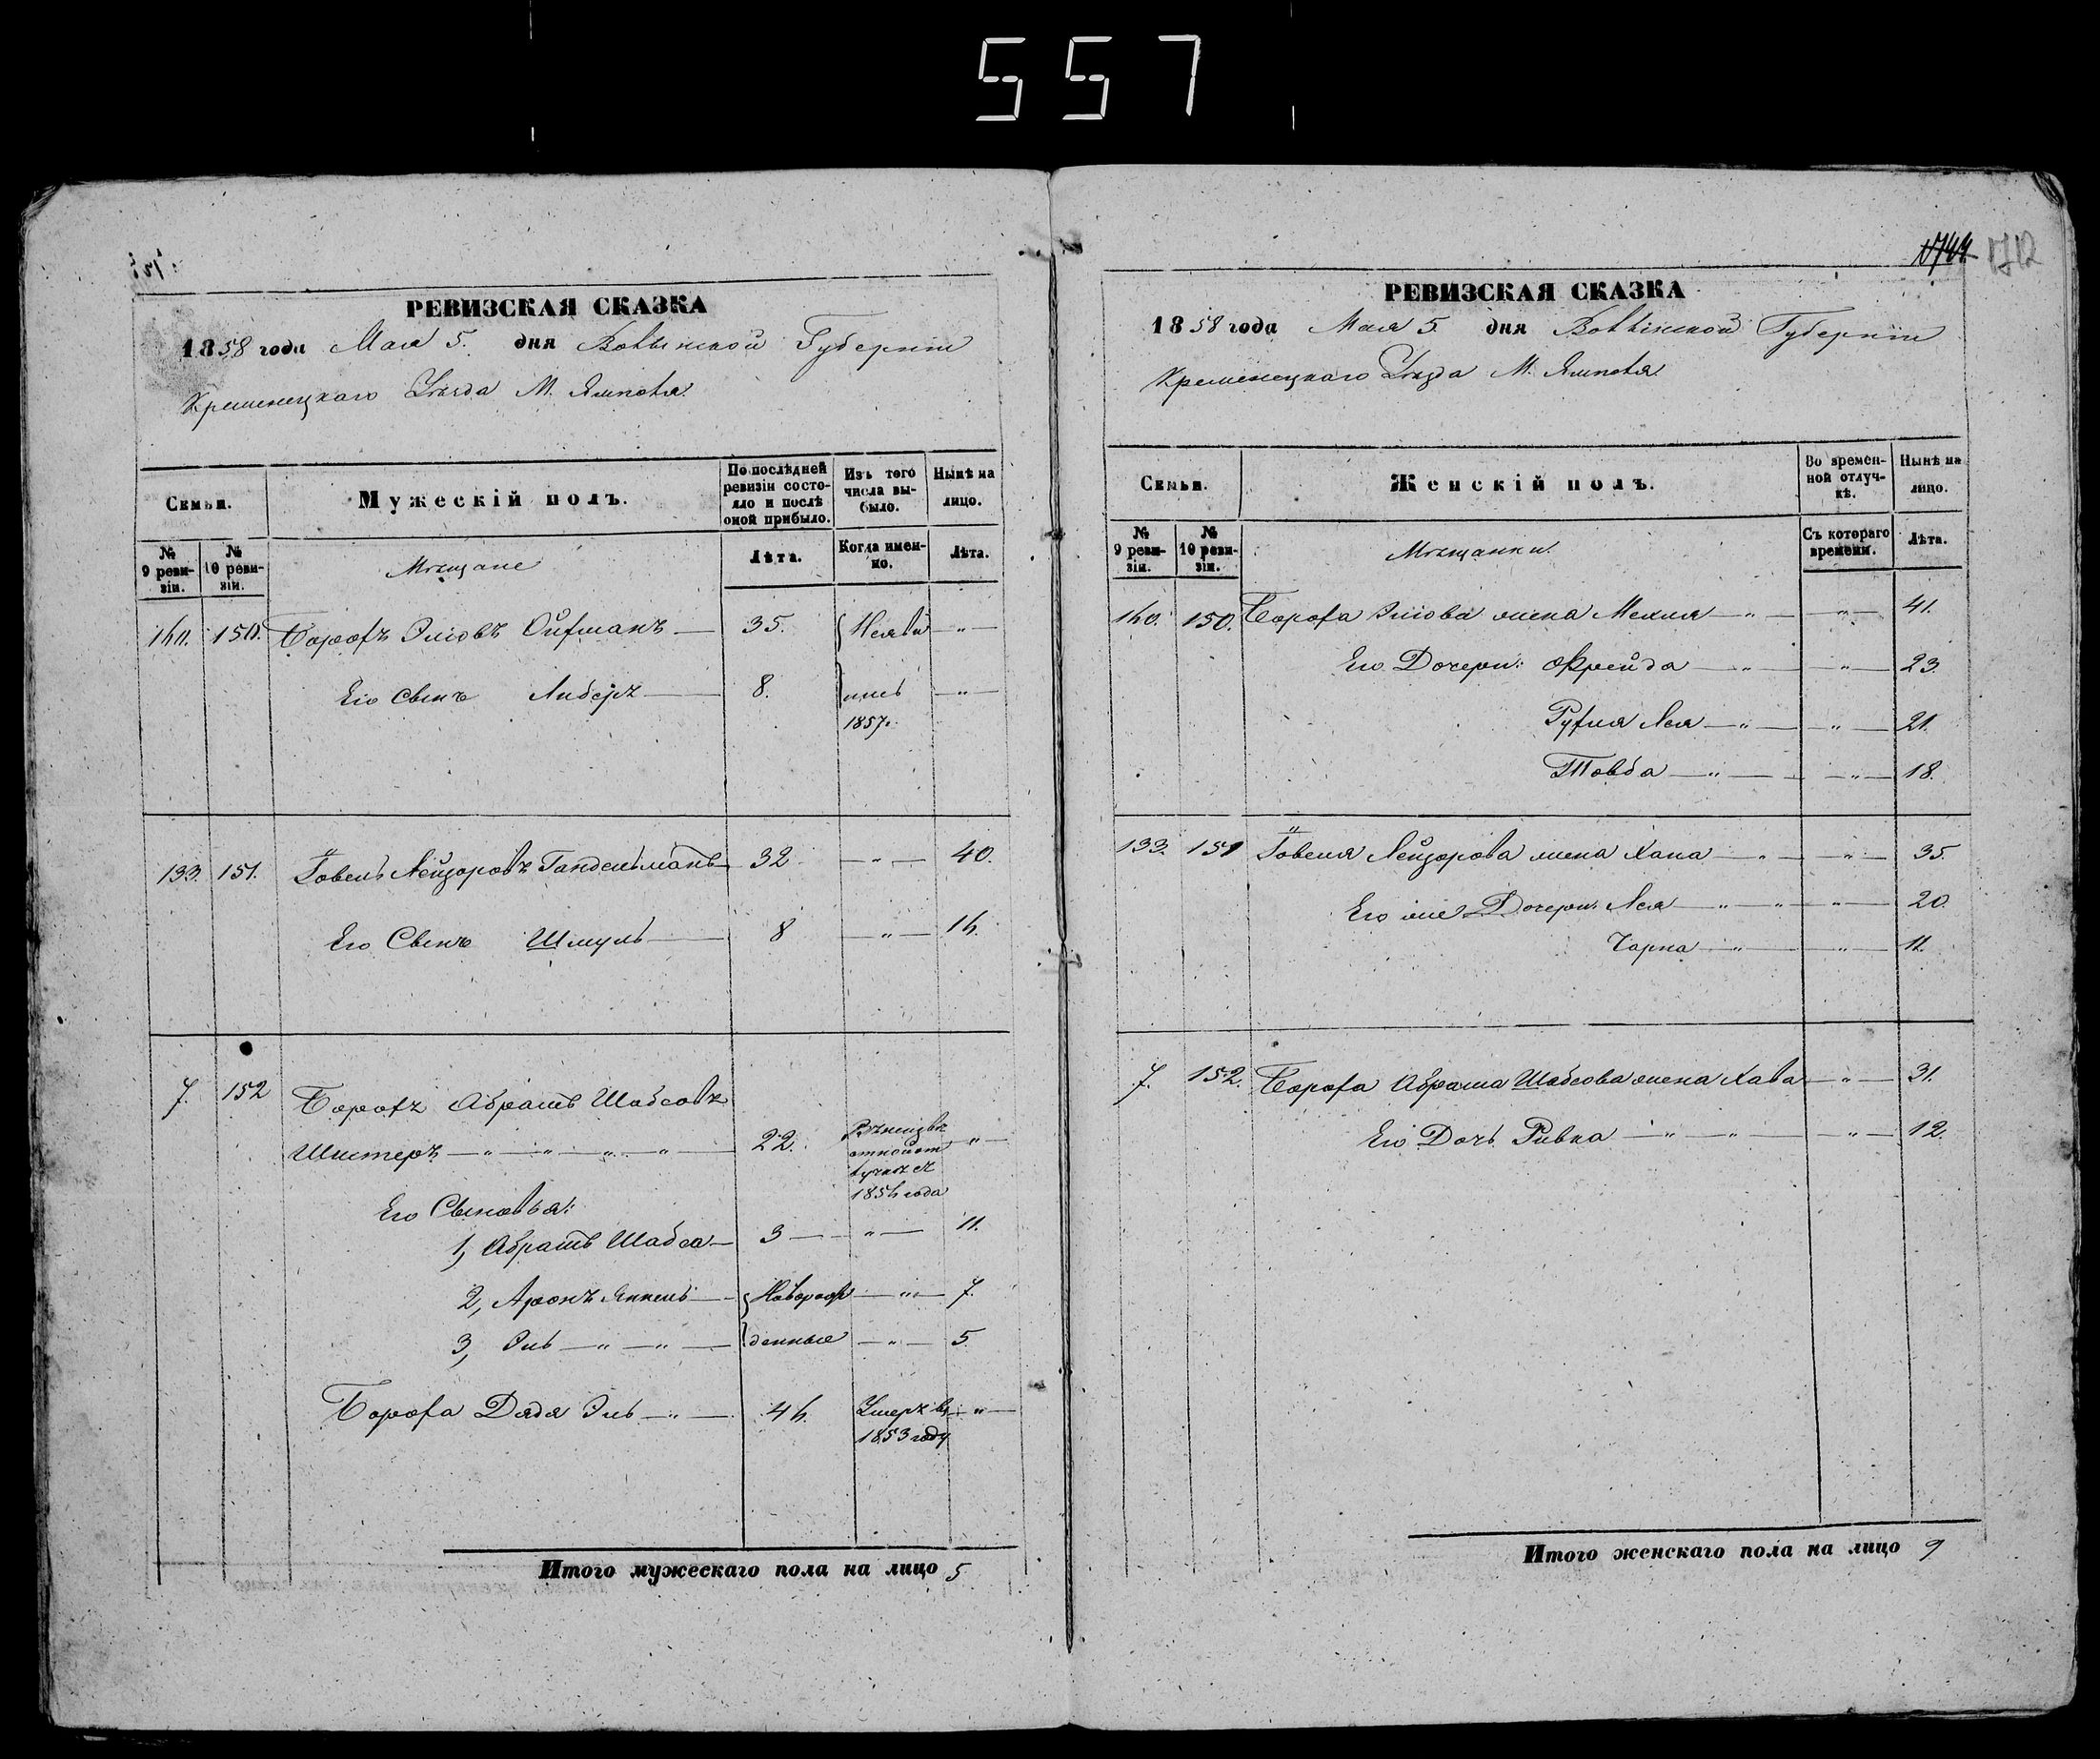 557
1744 1712
РЕВИЗСКАЯ СКАЗКА
1858 года Мая 5. дня Волынской Губерніи
Кременецкаго Уѣзда М. Ямполя.
Семьи.
Мужескій полъ.
По послѣдней ревизіи состояло и послѣ оной прибыло.
Изъ того числа выбыло.
Нынѣ на лицо.
№ 9 ревизіи.
№ 10 ревизіи.
Мѣщане
Лѣта.
Когда именно.
Лѣта.
140. 150. Борохъ Эліовъ Ойхманъ — 35. Неяви — " —
Его Сынъ Либеръ — 8. лись — " —
1857.
133. 151. Іовель Лейзоровъ Гандельманъ 32 — " — 40.
Его Сынъ Шмуль — 8 — " — 14.
7. 152 Борохъ Абрамъ Шабсовъ
Шистеръ — " — " — " — " — 22. "
1854 года
Его Сыновья:
1, Абрамъ Шабса — 3 — " — 11.
2, Аронъ Янкель — Новорож — " — 7.
3, Эль — " — " — денные — " — 5.
Бороха Дядя Эль — " — 44. Умеръ въ — " —
1853 году
Итого мужескаго пола на лицо 5
РЕВИЗСКАЯ СКАЗКА
1858 года Мая 5. дня Волынской Губерніи
Кременецкаго Уѣзда М. Ямполя.
Семьи.
Женскій полъ.
Во временной отлучкѣ.
Нынѣ на лицо.
№ 9 ревизіи.
№ 10 ревизіи.
Мѣщанки.
Съ котораго времени.
Лѣта.
140. 150. Бороха Эліова жена Мехля — " — " — 41.
Его Дочери: Фрейда — " — " — 23.
Рухля Лея — " — " — 21.
Товба — " — " — 18.
133. 151 Іовеля Лейзорова жена Хана — " — " — 35.
Его же Дочери: Лея — " — " — " — 20.
Чарна — " — " — 11.
7. 152. Бороха Абрама Шабсова жена Хава — " — 31.
Его Дочь Ривка — " — " — " — 12.
Итого женскаго пола на лицо 9